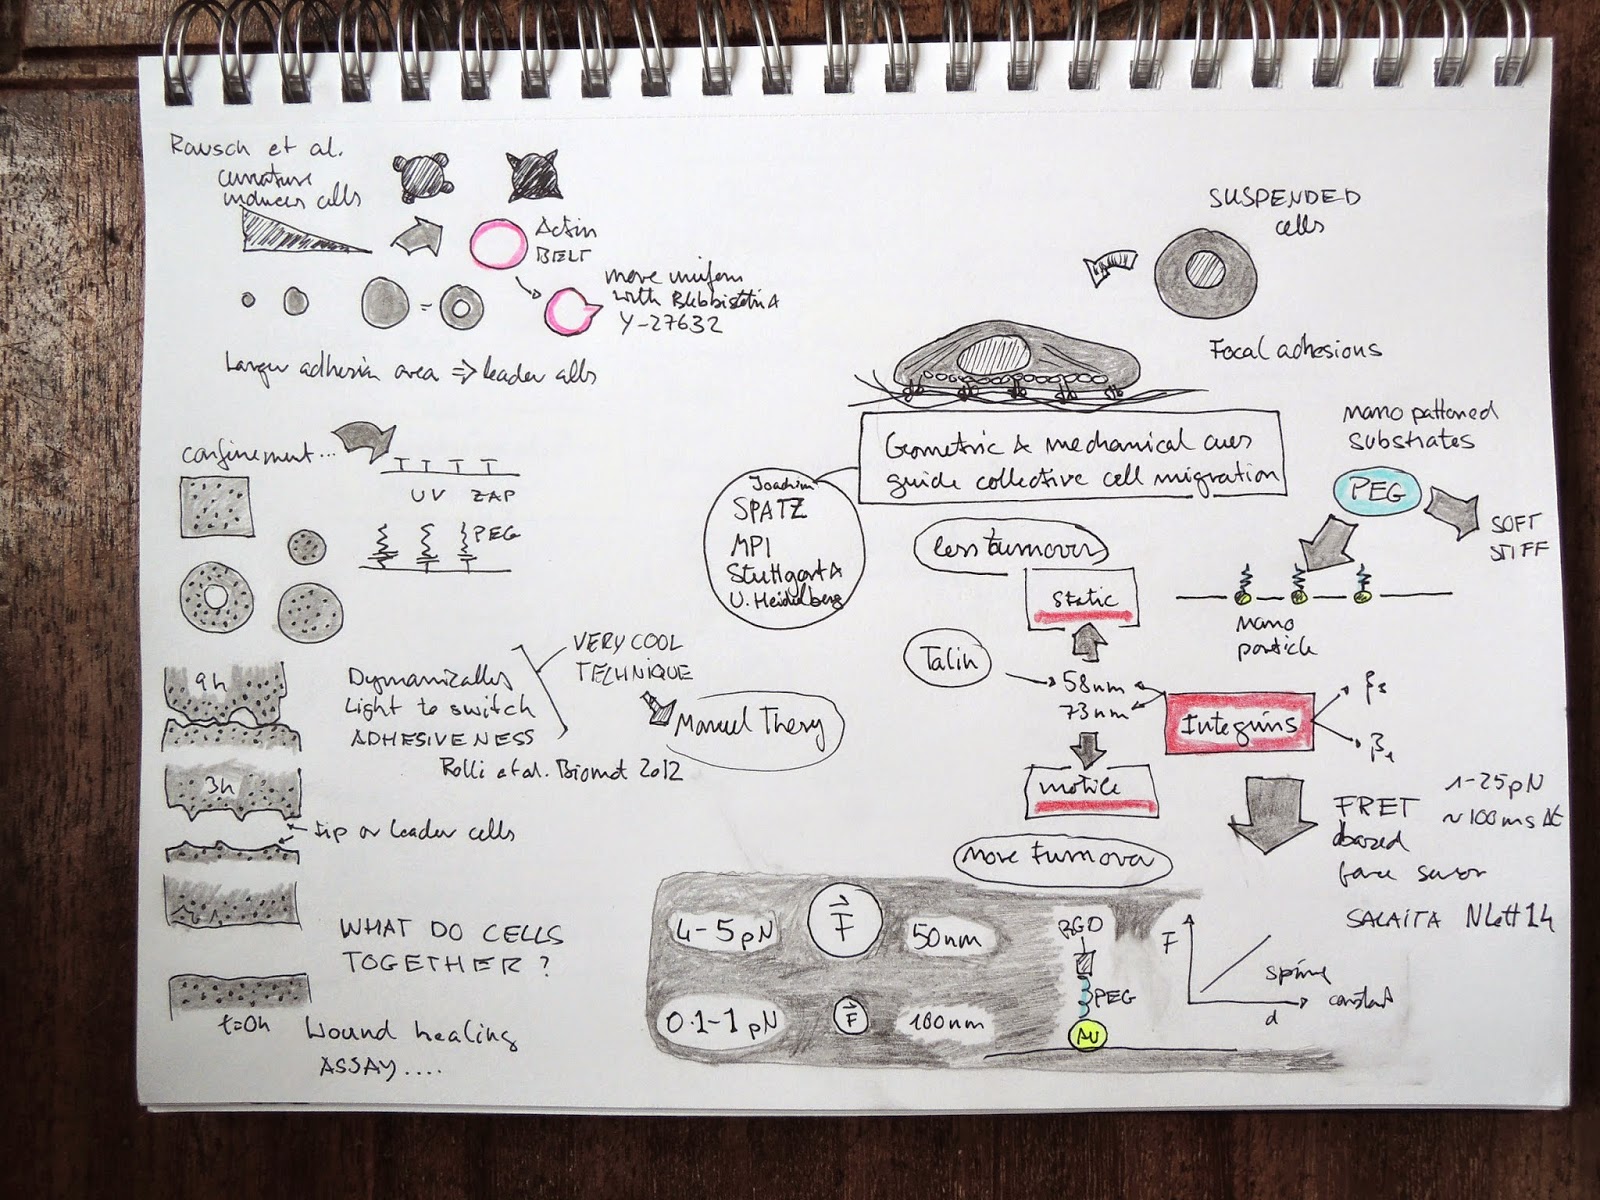 Rausch et al.
curvature
induces cells
Actin
BELT
move uniform
with Blebbistatin &
Y-27632
Larger adhesion area => leader cells
confinement...
UV ZAP
PEG
9h
Dynamically
Light to switch
ADHESIVENESS
VERY COOL
TECHNIQUE
Manuel Thery
Rolli et al. Biomat 2012
3h
tip or leader cells
WHAT DO CELLS
TOGETHER?
t=0h
Wound healing
ASSAY....
SUSPENDED
cells
Focal adhesions
Geometric & mechanical cues
guide collective cell migration
Joachim
SPATZ
MPI
Stuttgart &
U. Heidelberg
nano patterned
substrates
PEG
SOFT
STIFF
nano
particle
less turnover
static
Talin
58nm
73nm
Integrins
β3
β1
motile
more turnover
FRET
based
force sensor
1-25pN
~100ms Δt
SALAITA NLett14
4-5pN
F
50nm
0.1-1pN
F
100nm
RGD
PEG
AU
F
d
spring
constant